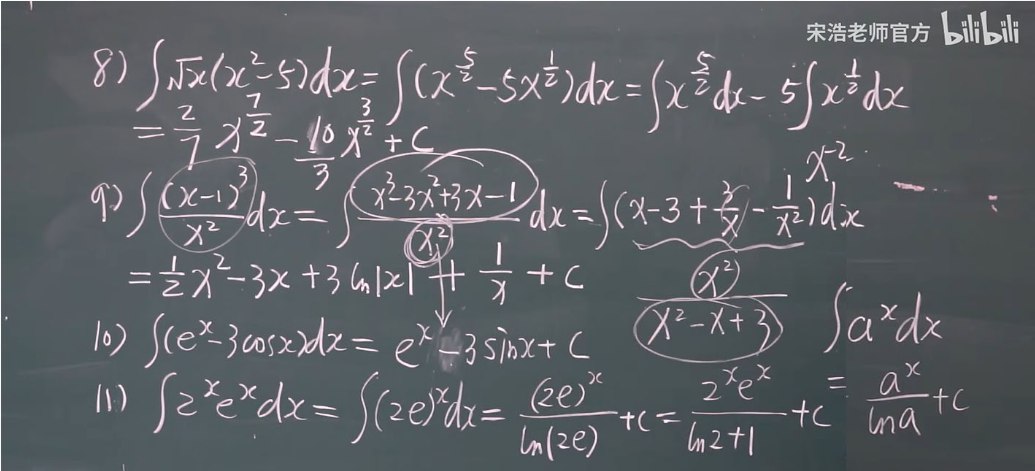 宋浩老师官方 bilibili
8) ∫√x(x²-5)dx = ∫(x^{5/2} - 5x^{1/2})dx = ∫x^{5/2}dx - 5∫x^{1/2}dx
= 2/7 x^{7/2} - 10/3 x^{3/2} + C
x^{-2}
9) ∫ (x-1)³/x² dx = ∫ (x³-3x²+3x-1)/x² dx = ∫(x-3+3/x-1/x²)dx
= 1/2 x² - 3x + 3ln|x| + 1/x + C
x²/(x²-x+3)
10) ∫(e^x - 3cosx)dx = e^x - 3sinx + C
∫a^x dx
11) ∫2^x e^x dx = ∫(2e)^x dx = (2e)^x/ln(2e) + C = 2^x e^x/(ln2+1) + C
= a^x/lna + C